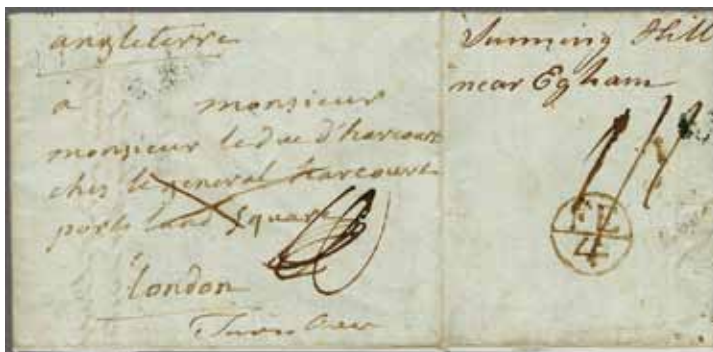 angleterre
à monsieur
monsieur le duc d'harcourt
chez le general harcourt
portland square
london
Turn Over
Sunning Hill
near Egham